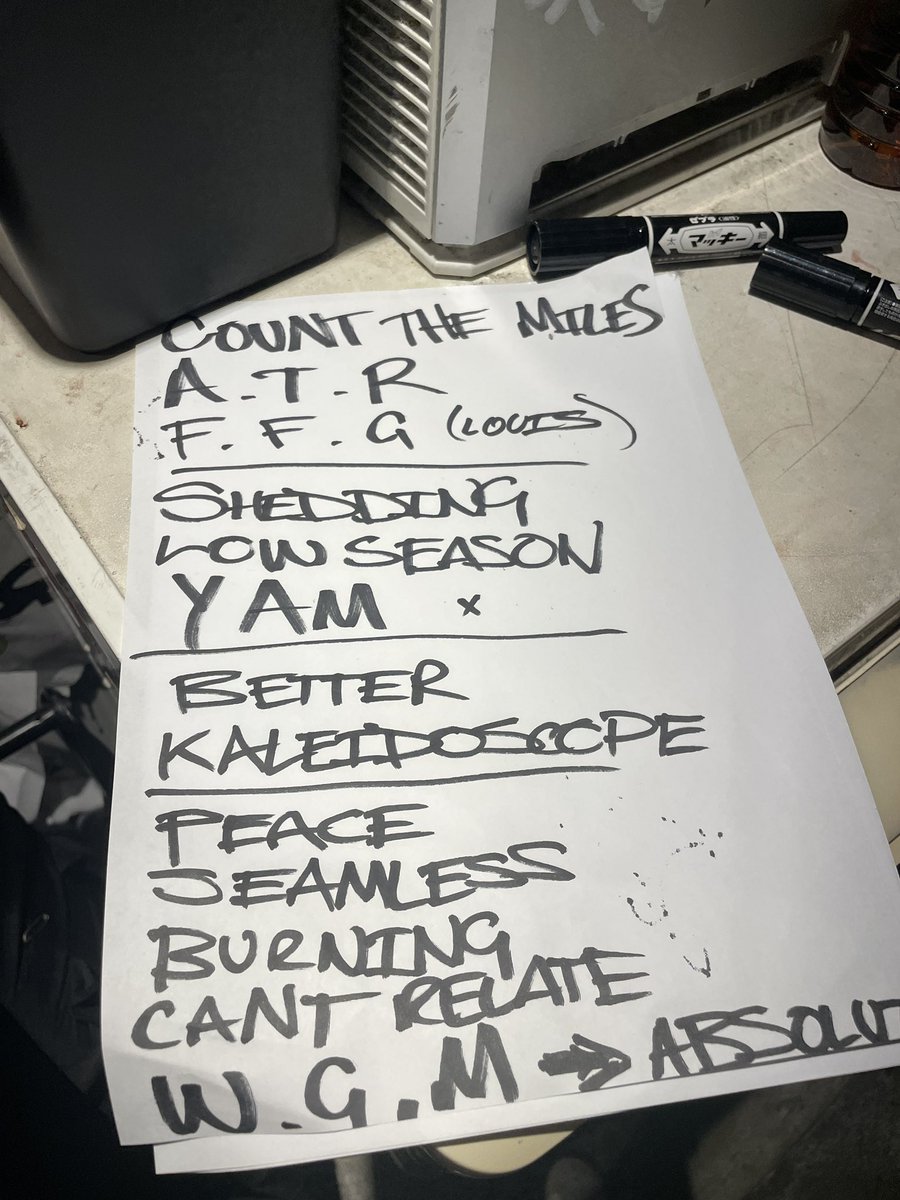 ゼブラ〈油性〉
太 マッキー 細
COUNT THE MILES
A.T.R
F.F.G (LOUIS)
SHEDDING
LOW SEASON
YAM x
BETTER
KALEIDOSCOPE
PEACE
SEAMLESS
BURNING
CANT RELATE
W.G.M → ABSOLUT